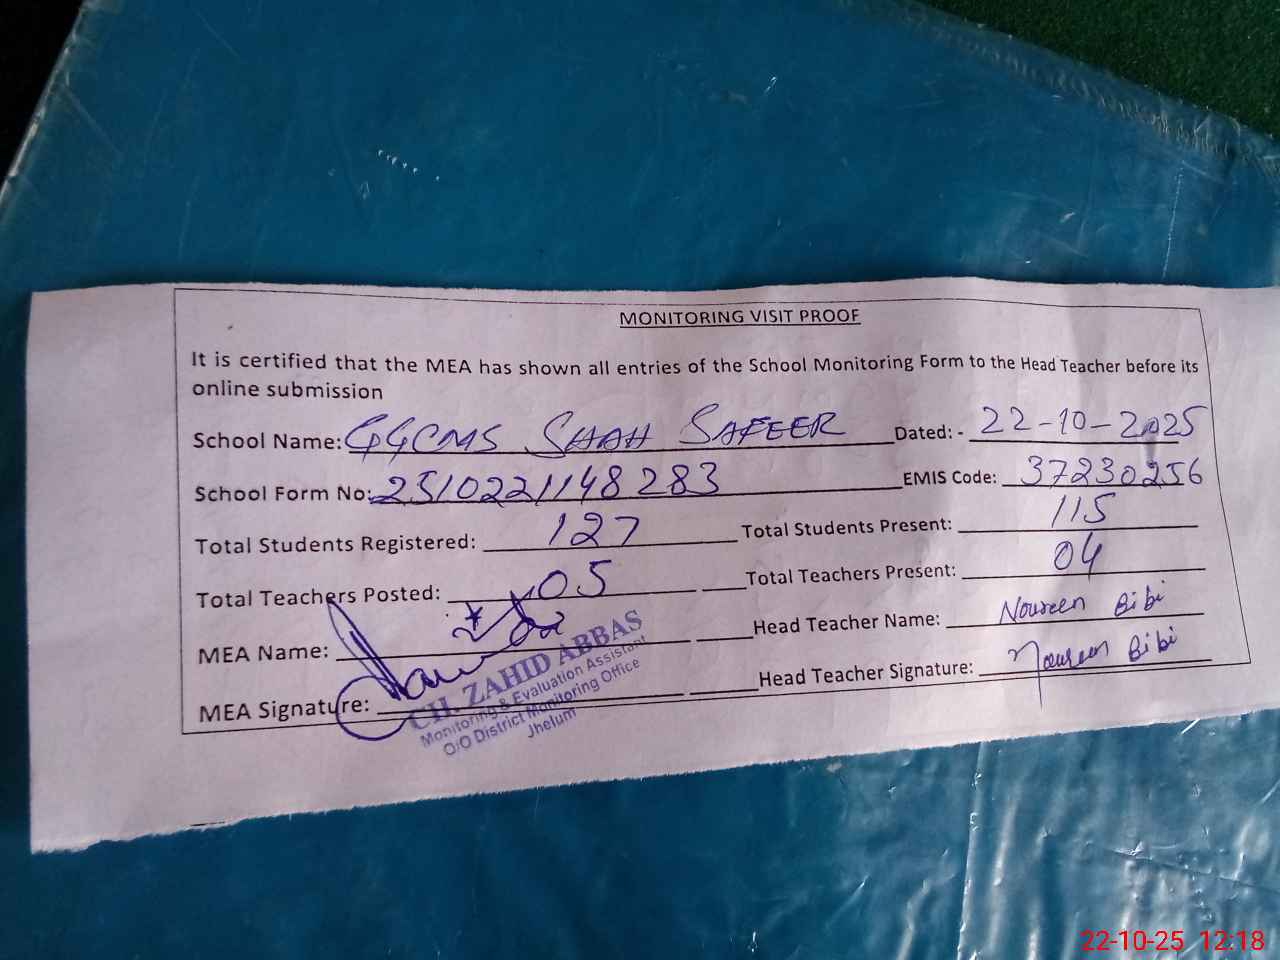 MONITORING VISIT PROOF
It is certified that the MEA has shown all entries of the School Monitoring Form to the Head Teacher before its
online submission
School Name: GGCMS SHAH SAFEER Dated: - 22-10-2025
School Form No: 2510221148283 EMIS Code: 37230256
Total Students Registered: 127 Total Students Present: 115
Total Teachers Posted: 05 Total Teachers Present: 04
MEA Name: Head Teacher Name: Noureen Bibi
MEA Signature: Head Teacher Signature: Noureen Bibi
CH. ZAHID ABBAS
Monitoring & Evaluation Assistant
O/O District Monitoring Office
Jhelum
22-10-25 12:18